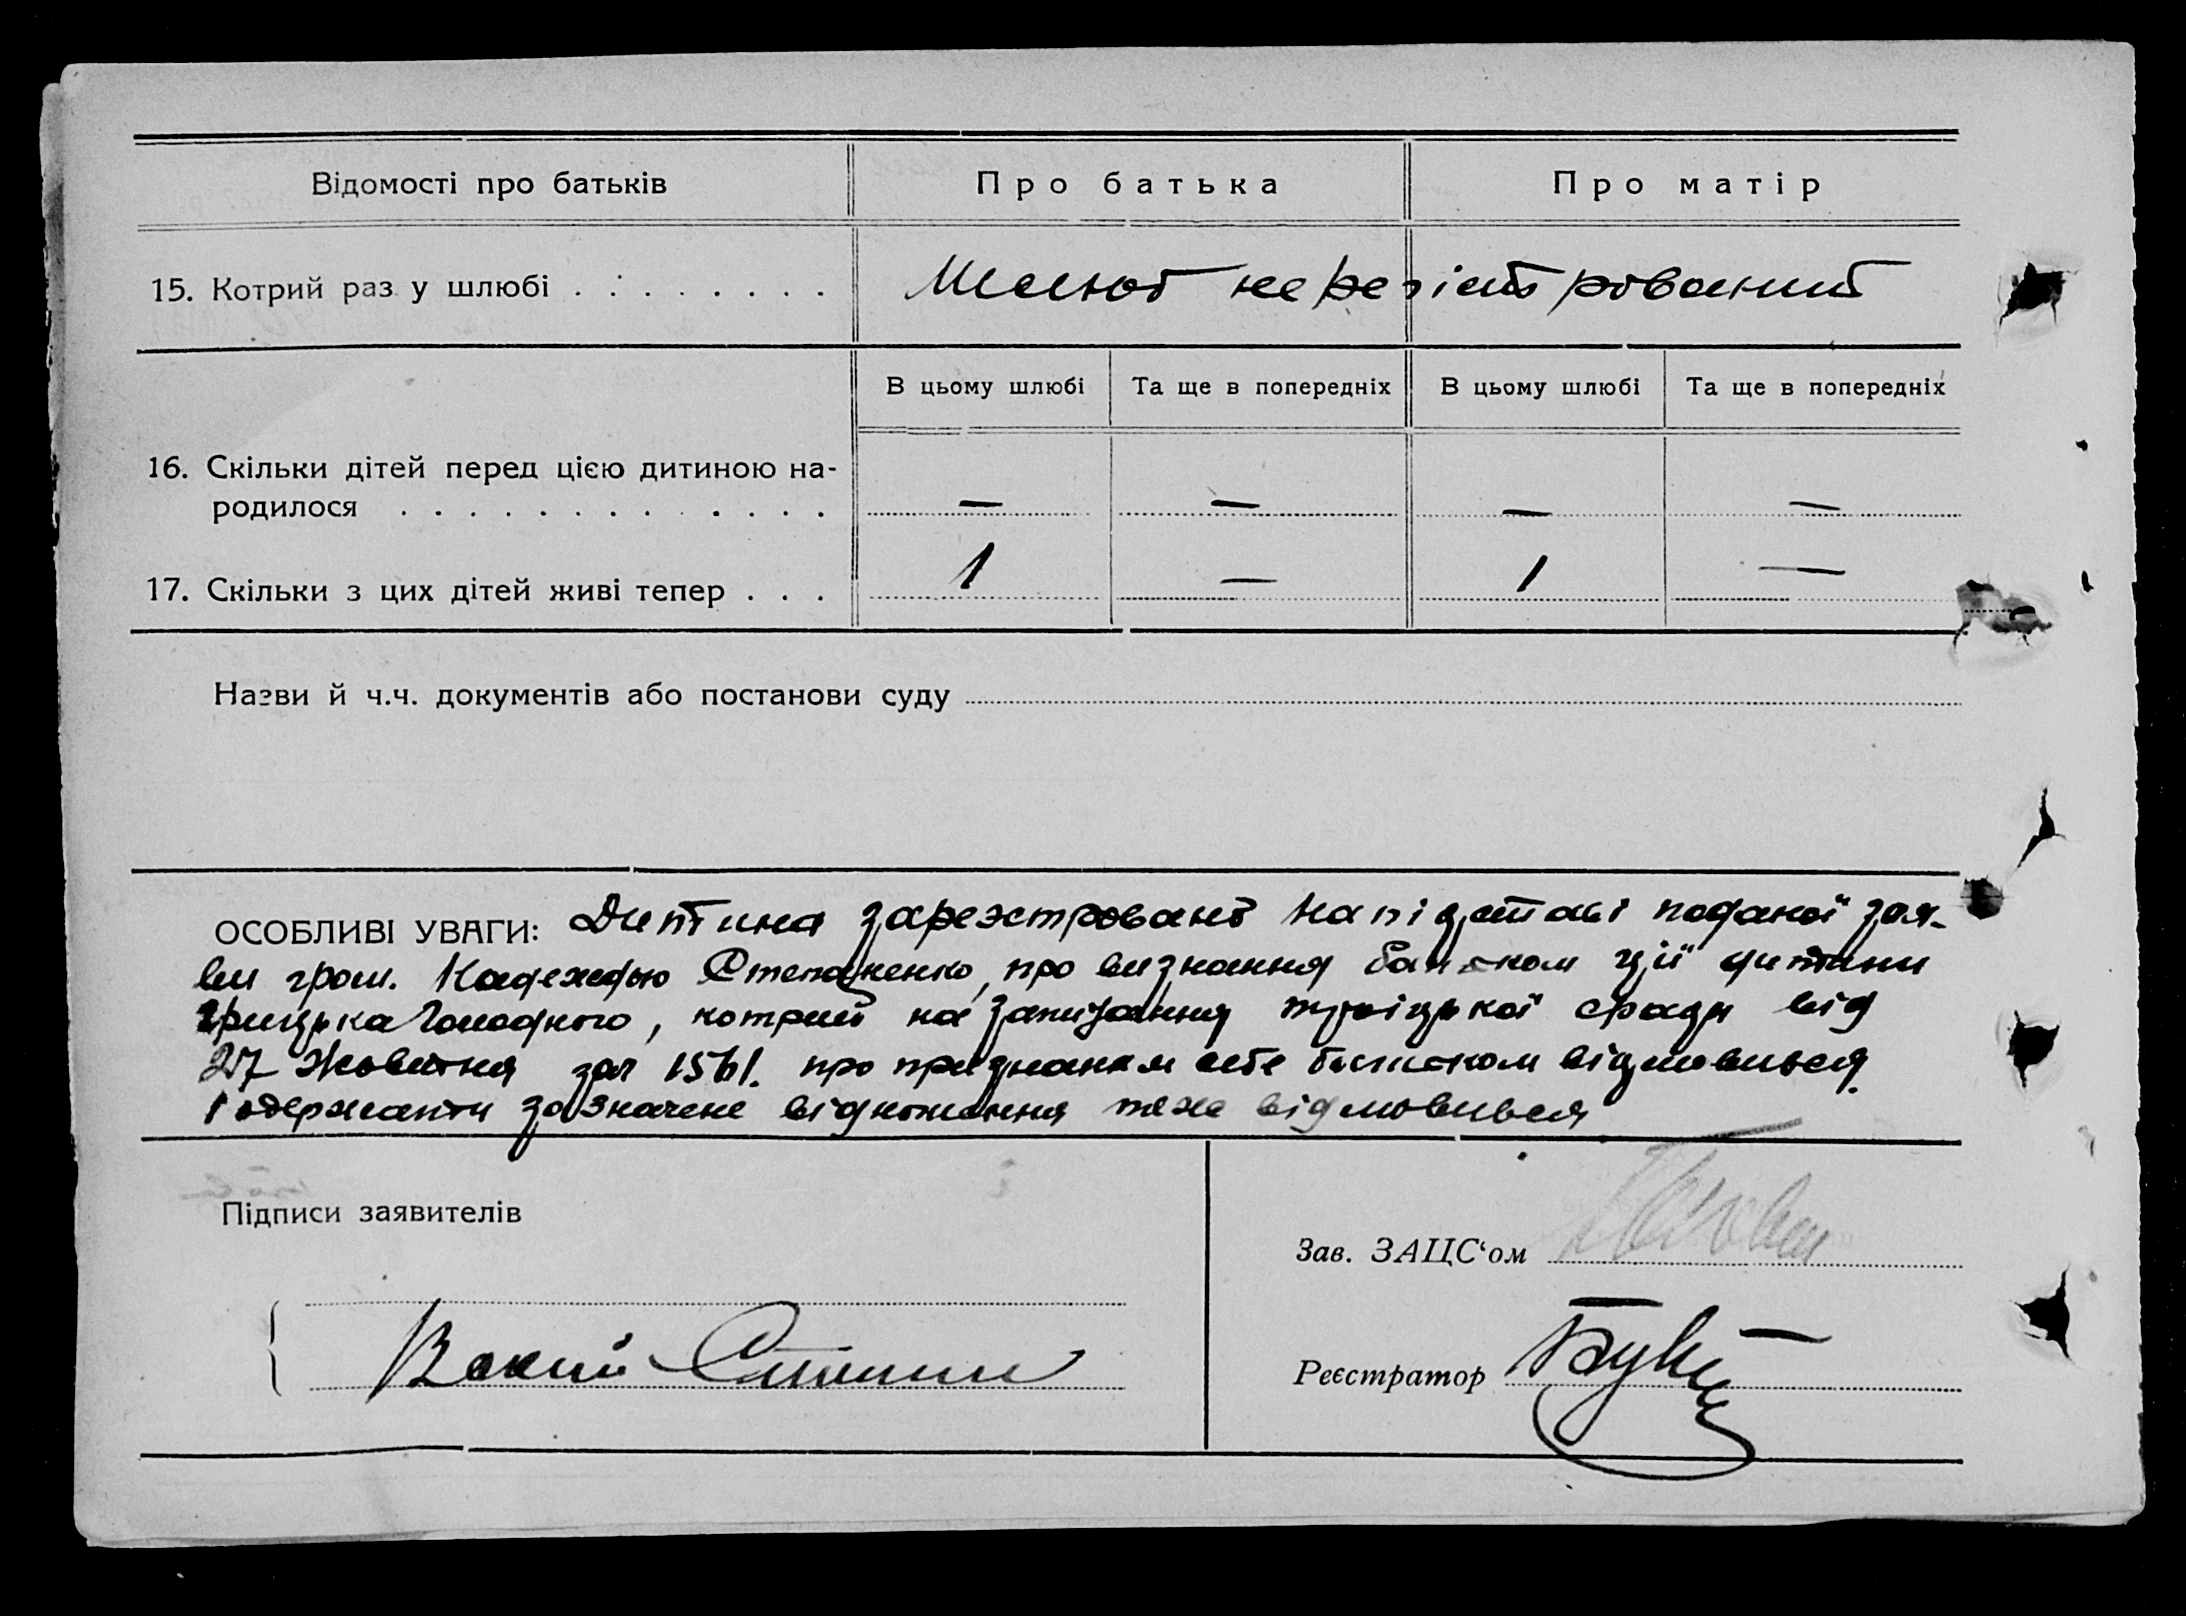 Відомості про батьків Про батька Про матір
15. Котрий раз у шлюбі . . . . . . . . Шлюб не регістрований
В цьому шлюбі Та ще в попередніх В цьому шлюбі Та ще в попередніх
16. Скільки дітей перед цією дитиною на-
родилося . . . . . . . . . . . . . — — — —
17. Скільки з цих дітей живі тепер . . . 1 — 1 —
Назви й ч.ч. документів або постанови суду
ОСОБЛИВІ УВАГИ: Дитина зареэстрована на підставі поданої зая-
ви гром. Надеждою Степаненко, про визнання батьком ції дитини
Грицька Голодного, котрий на запитання сради від
27 Жовтня за № 1561. про признання себе батьком відмовився
і одержати зазначене відношення теж відмовився
Підписи заявителів
Зав. ЗАЦС‘ом
Реєстратор